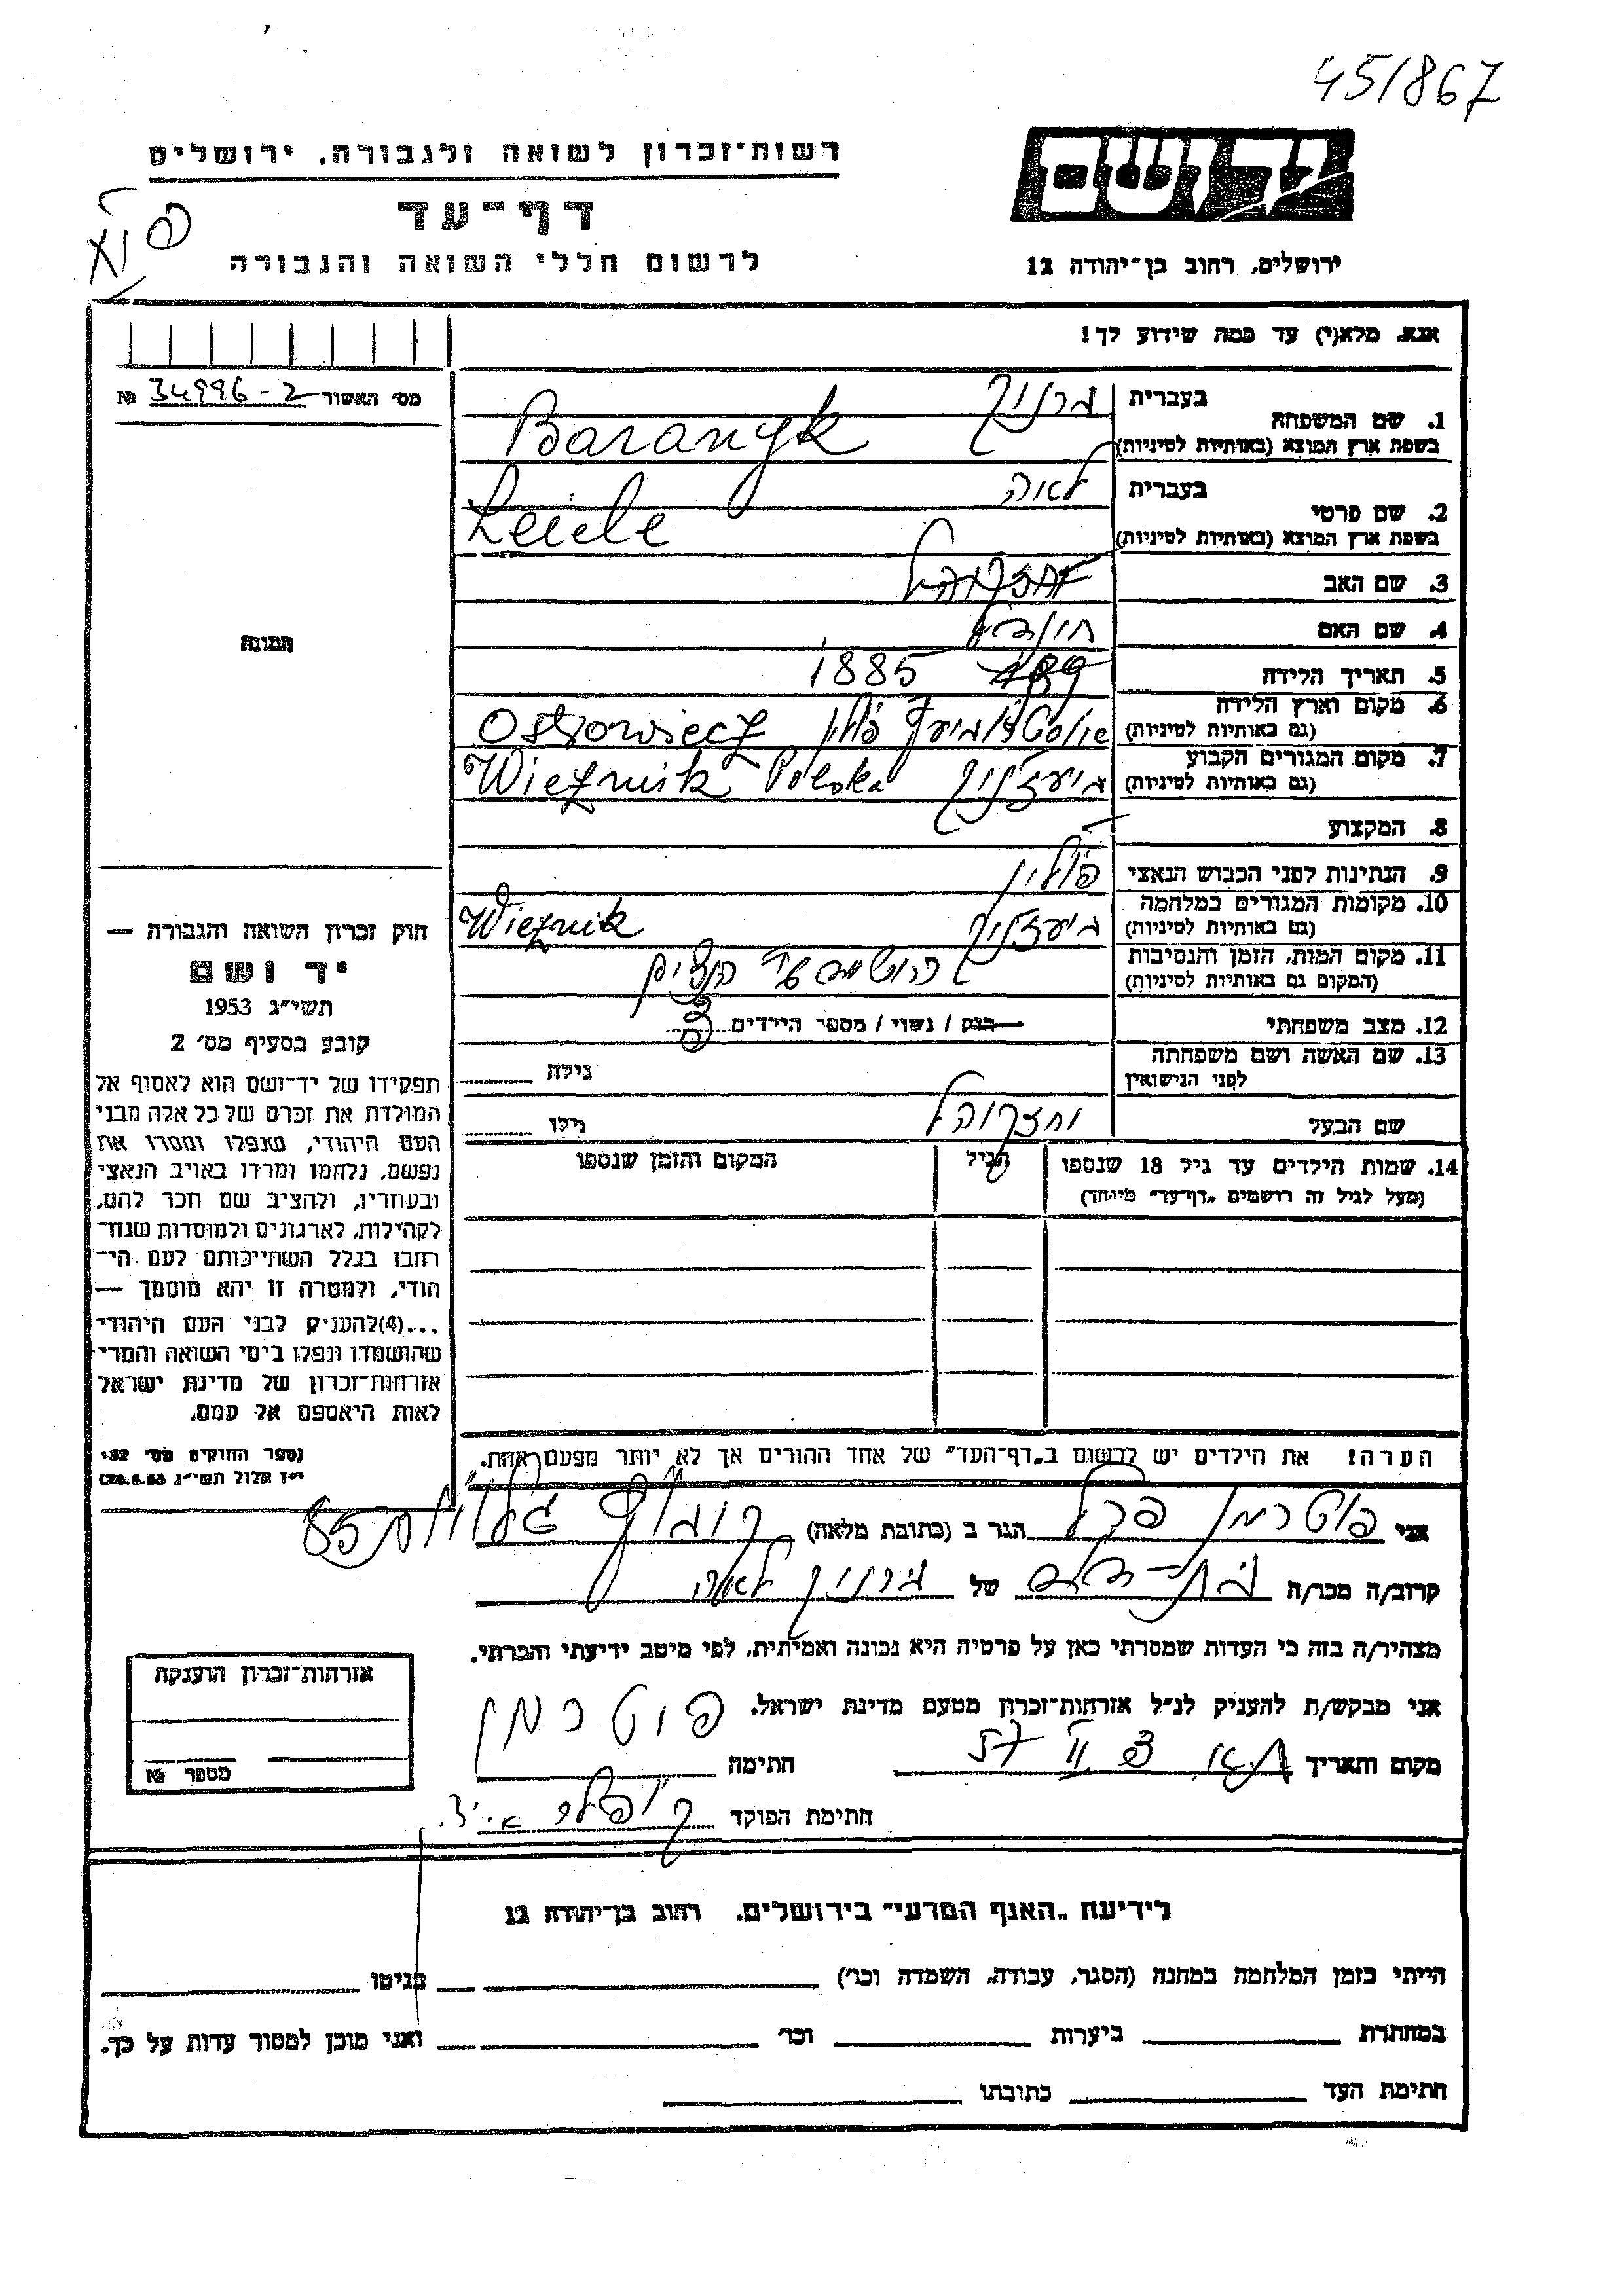 45/867
רשות-זכרון לשואה ולגבורה, ירושלים
יד ושם
דף-עד
לרשום חללי השואה והגבורה
ירושלים, רחוב בן-יהודה 12
אנא, מלא(י) עד כמה שידוע לך!
מס׳ האשור 34996-2 №
1. שם המשפחה
בעברית ברניק
בשפת ארץ המוצא (באותיות לטיניות) Baranyk
2. שם פרטי
בעברית לאה
בשפת ארץ המוצא (באותיות לטיניות) Leiele
3. שם האב
4. שם האם
5. תאריך הלידה 1885
6. מקום וארץ הלידה
(גם באותיות לטיניות) פולין Ostrowiecz
7. מקום המגורים הקבוע
(גם באותיות לטיניות) Wieznik Polska
8. המקצוע
9. הנתינות לפני הכבוש הנאצי פולין
10. מקומות המגורים במלחמה
(גם באותיות לטיניות) Wieznik
11. מקום המות, הזמן והנסיבות
(המקום גם באותיות לטיניות)
12. מצב משפחתי רווק / נשוי / מספר הילדים
13. שם האשה ושם משפחתה
לפני הנישואין גילה
שם הבעל גילו
14. שמות הילדים עד גיל 18 שנספו
(מעל לגיל זה רושמים „דף-עד” מיוחד)
הגיל
המקום והזמן שנספו
הערה! את הילדים יש לרשום ב„דף-העד” של אחד ההורים אך לא יותר מפעם אחת.
תמונה
חוק זכרון השואה והגבורה —
יד ושם
תשי״ג 1953
קובע בסעיף מס׳ 2
תפקידו של יד-ושם הוא לאסוף אל
המולדת את זכרם של כל אלה מבני
העם היהודי, שנפלו ומסרו את
נפשם, נלחמו ומרדו באויב הנאצי
ובעוזריו, ולהציב שם וזכר להם,
לקהילות, לארגונים ולמוסדות שנח־
רבו בגלל השתייכותם לעם הי־
הודי, ולמטרה זו יהא מוסמך —
...(4) להעניק לבני העם היהודי
שהושמדו ונפלו בימי השואה והמרי
אזרחות-זכרון של מדינת ישראל
לאות היאספם אל עמם.
(ספר החוקים מס׳ 132,
י״ז אלול תשי״ג 28.8.53)
אני פוטרמן הגר ב (כתובת מלאה) 85
קרוב/ה מכר/ה של ברניק לאה
מצהיר/ה בזה כי העדות שמסרתי כאן על פרטיה היא נכונה ואמיתית, לפי מיטב ידיעתי והכרתי.
אני מבקש/ת להעניק לנ״ל אזרחות-זכרון מטעם מדינת ישראל.
מקום ותאריך חתימה פוטרמן
חתימת הפוקד
אזרחות-זכרון הוענקה
מספר №
לידיעת „האגף המדעי” בירושלים, רחוב בן-יהודה 12
הייתי בזמן המלחמה במחנה (הסגר, עבודה, השמדה וכו׳) בגיטו
במחתרת ביערות וכו׳ ואני מוכן למסור עדות על כך.
חתימת העד כתובתו